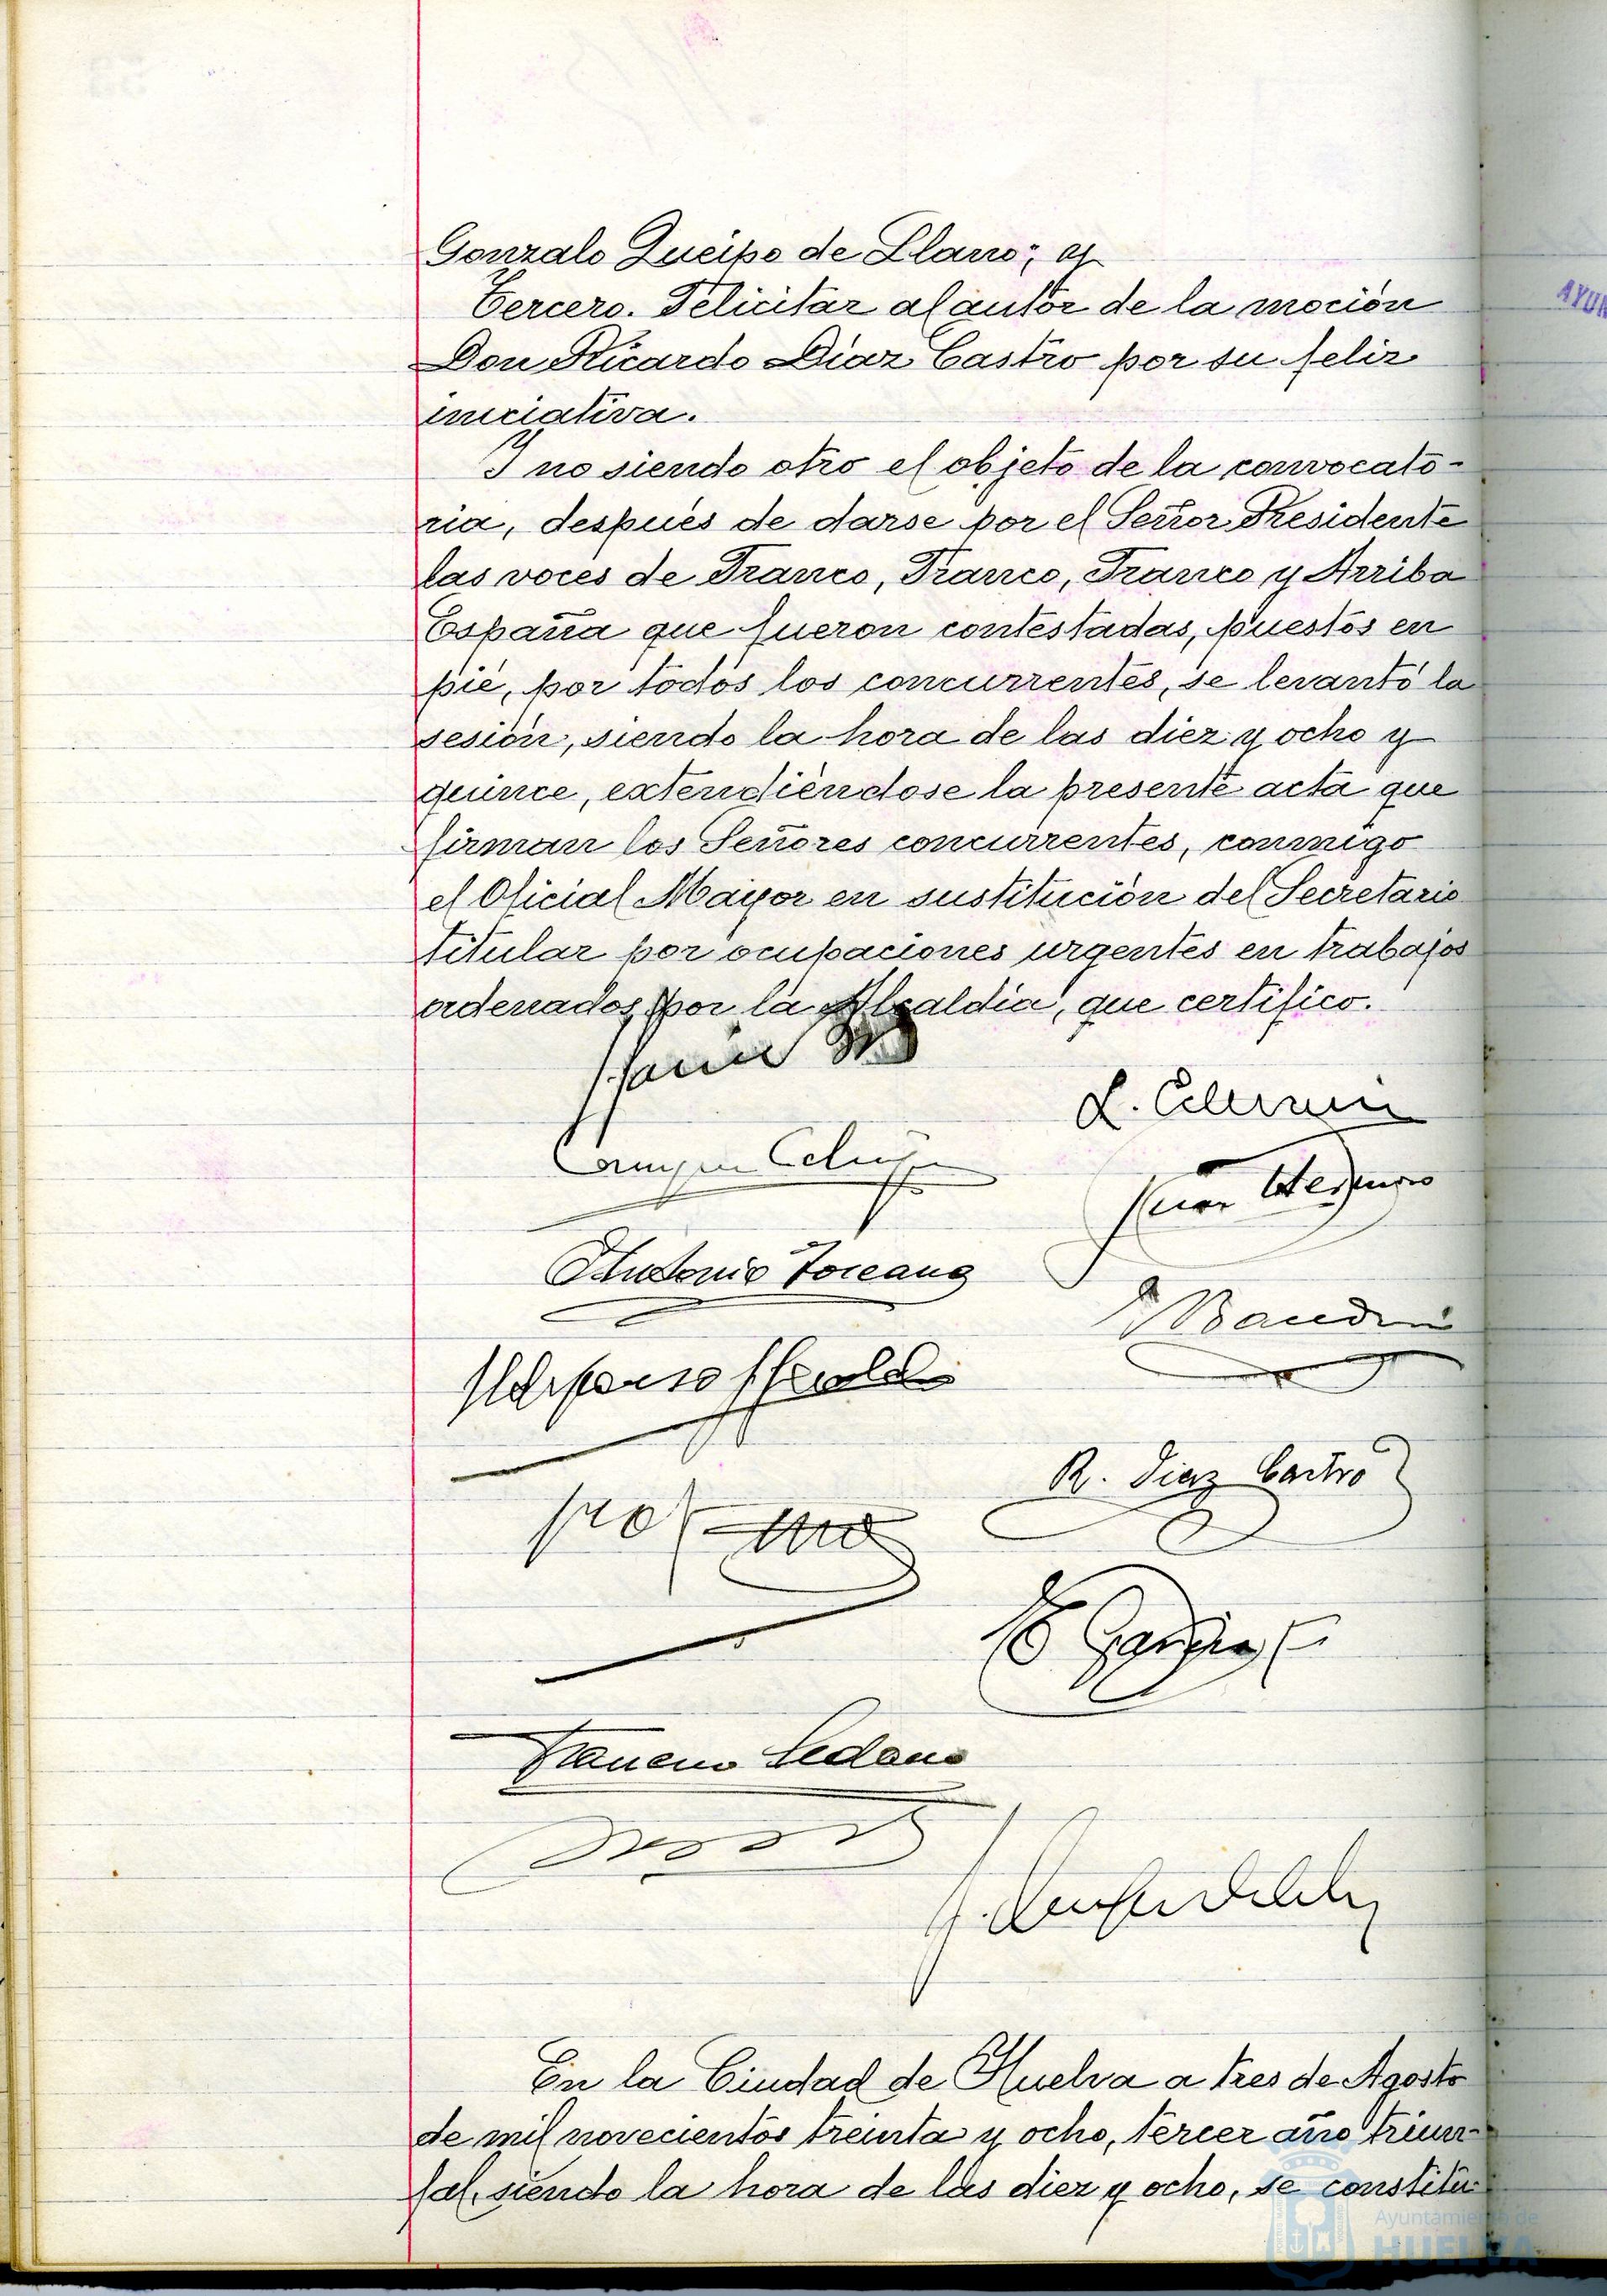 Gonzalo Queipo de Llano; y
Tercero. Felicitar al autor de la moción
Don Ricardo Díaz Castro por su feliz
iniciativa.
Y no siendo otro el objeto de la convocato-
ria, después de darse por el Señor Presidente
las voces de Franco, Franco, Franco y Arriba
España que fueron contestadas, puestos en
pié, por todos los concurrentes, se levantó la
sesión, siendo la hora de las diez y ocho y
quince, extendiéndose la presente acta que
firman los Señores concurrentes, conmigo
el Oficial Mayor en sustitución del Secretario
titular por ocupaciones urgentes en trabajos
ordenados por la Alcaldía, que certifico.
Antonio Toscano
R. Díaz Castro
Francisco Sedano
En la Ciudad de Huelva a tres de Agosto
de mil novecientos treinta y ocho, tercer año triun-
fal, siendo la hora de las diez y ocho, se constitu-
AYUN
Ayuntamiento de
HUELVA